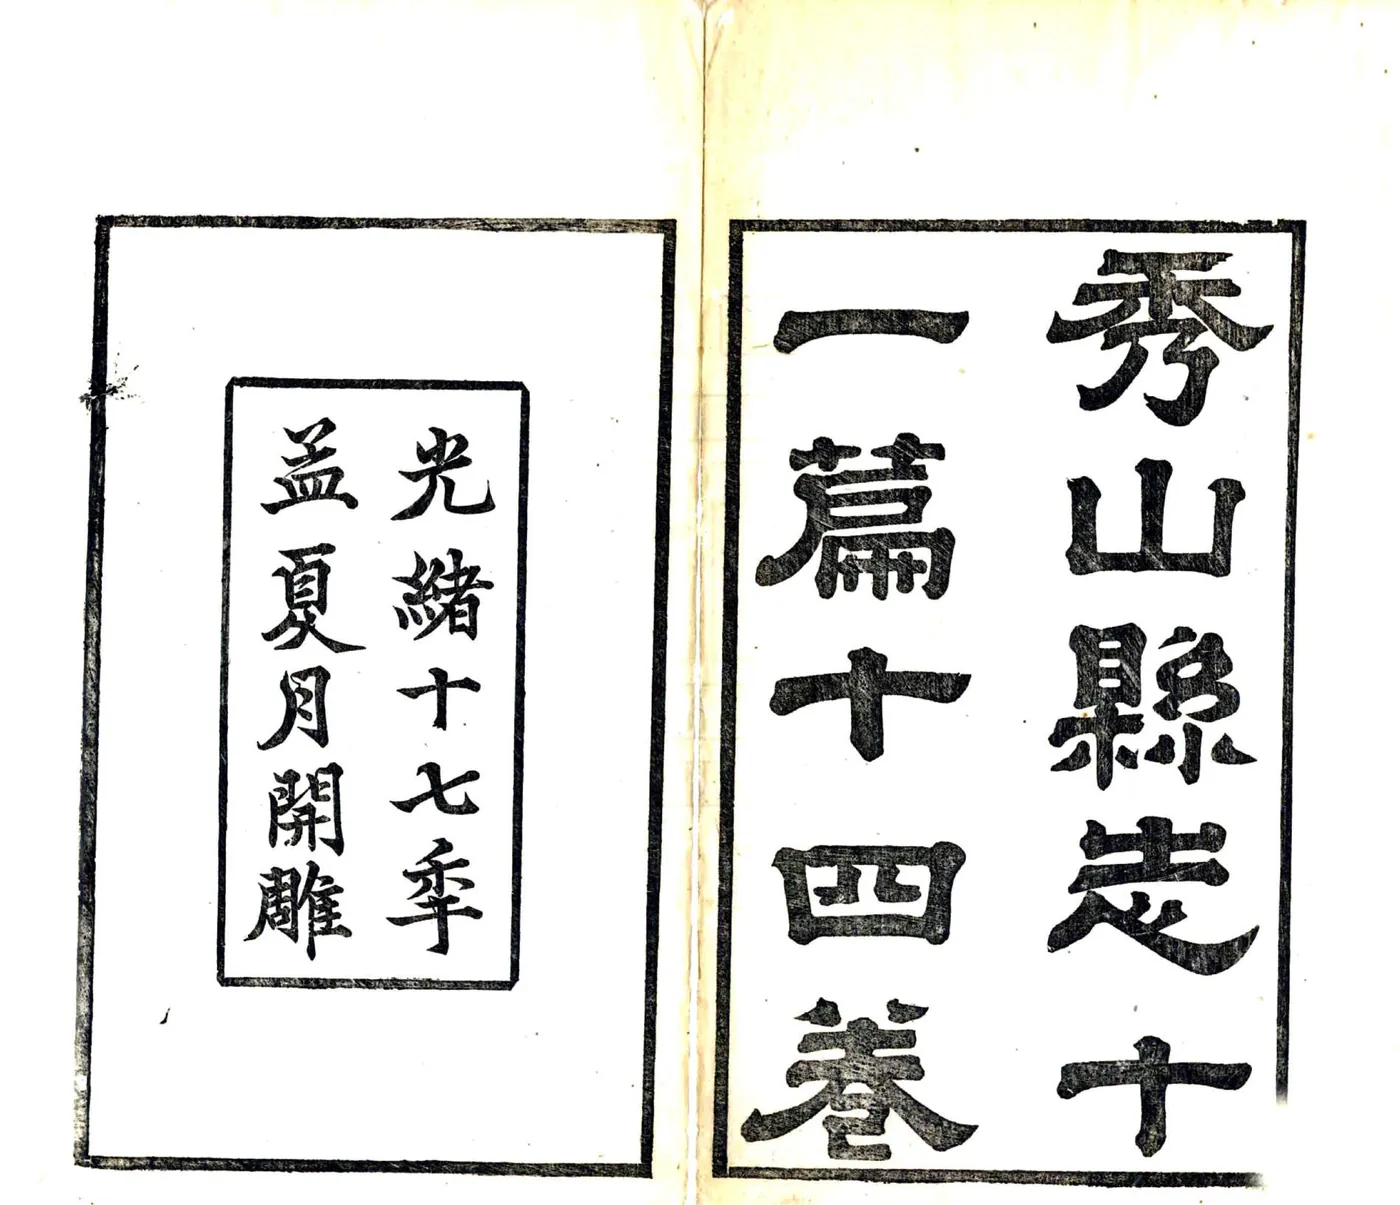 秀山縣志十
一篇十四卷
光緒十七秊
孟夏月開雕